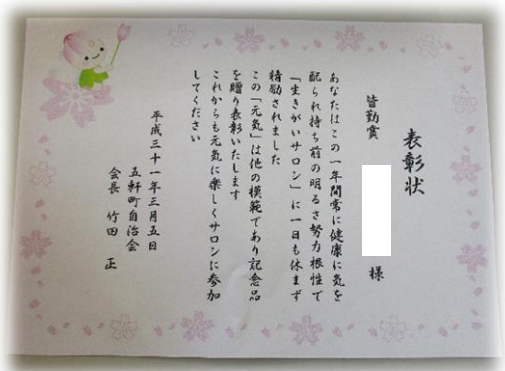 表彰状
皆勤賞 様
あなたはこの一年間常に健康に気を
配られ持ち前の明るさ努力根性で
「生きがいサロン」に一日も休まず
精励されました
この「元気」は他の模範であり記念品
を贈り表彰いたします
これからも元気に楽しくサロンに参加
してください
平成三十一年三月五日
五軒町自治会
会長 竹田 正